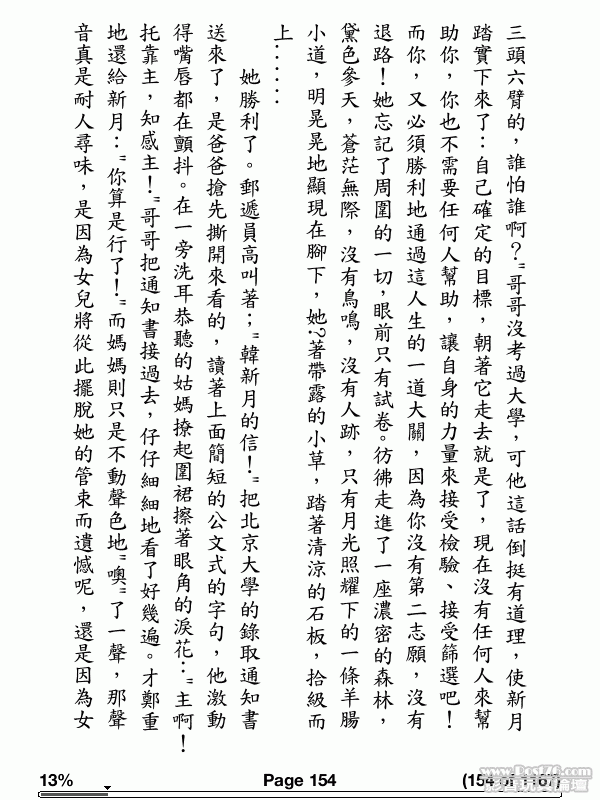 三頭六臂的，誰怕誰啊？"哥哥沒考過大學，可他這話倒挺有道理，使新月
踏實下來了：自己確定的目標，朝著它走去就是了，現在沒有任何人來幫
助你，你也不需要任何人幫助，讓自身的力量來接受檢驗、接受篩選吧！
而你，又必須勝利地通過這人生的一道大關，因為你沒有第二志願，沒有
退路！她忘記了周圍的一切，眼前只有試卷。彷彿走進了一座濃密的森林，
黛色參天，蒼茫無際，沒有鳥鳴，沒有人跡，只有月光照耀下的一條羊腸
小道，明晃晃地顯現在腳下，她?著帶露的小草，踏著清涼的石板，拾級而
上......
她勝利了。郵遞員高叫著；"韓新月的信！"把北京大學的錄取通知書
送來了，是爸爸搶先撕開來看的，讀著上面簡短的公文式的字句，他激動
得嘴唇都在顫抖。在一旁洗耳恭聽的姑媽撩起圍裙擦著眼角的淚花："主啊！
托靠主，知感主！"哥哥把通知書接過去，仔仔細細地看了好幾遍。才鄭重
地還給新月："你算是行了！"而媽媽則只是不動聲色地"噢"了一聲，那聲
音真是耐人尋味，是因為女兒將從此擺脫她的管束而遺憾呢，還是因為女
13%
Page 154